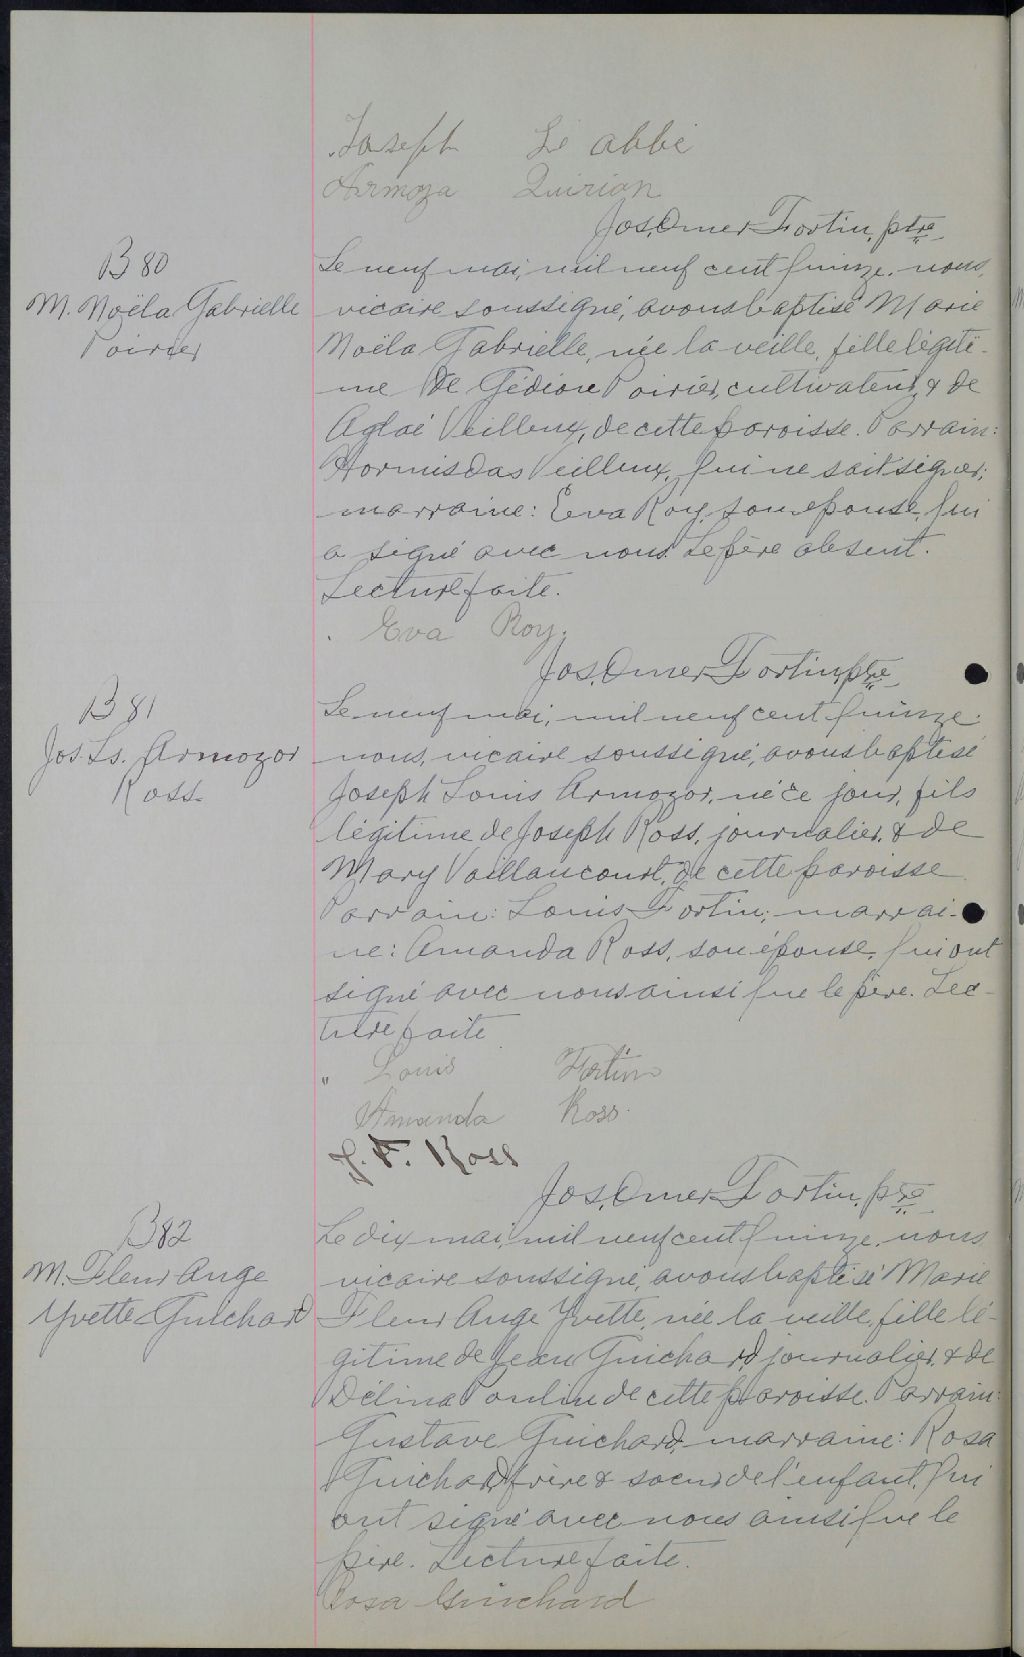 Joseph Le abbé
Armoza Quirion
Jos. Omer Fortin, ptre
B 80
M. Noëla Gabrielle
Poirier
Le neuf mai, mil neuf cent quinze, nous,
vicaire soussigné, avons baptisé Marie
Noëla Gabrielle, née la veille, fille légiti-
me de Gédéon Poirier, cultivateur, & de
Aglaé Veilleux, de cette paroisse. Parrain:
Hormisdas Veilleux, qui ne sait signer;
marraine: Eva Roy, son épouse, qui
a signé avec nous. Le père absent.
Lecture faite.
Eva Roy.
Jos. Omer Fortin, ptre
B 81
Jos. Ls. Armozor
Ross
Le neuf mai, mil neuf cent quinze,
nous, vicaire soussigné, avons baptisé
Joseph Louis Armozor, né ce jour, fils
légitime de Joseph Ross, journalier, & de
Mary Vaillancourt, de cette paroisse.
Parrain: Louis Fortin; marrai-
ne: Amanda Ross, son épouse, qui ont
signé avec nous ainsi que le père. Lec-
ture faite
" Louis Fortin
Amanda Ross.
J. F. Ross
Jos. Omer Fortin, ptre
B 82
M. Fleur Ange
Yvette Guichard
Le dix mai, mil neuf cent quinze, nous
vicaire soussigné, avons baptisé Marie
Fleur Ange Yvette, née la veille, fille lé-
gitime de Jean Guichard, journalier, & de
Délina Poulin de cette paroisse. Parrain:
Gustave Guichard; marraine: Rosa
Guichard, frère & soeur de l'enfant, qui
ont signé avec nous ainsi que le
père. Lecture faite.
Rosa Guichard